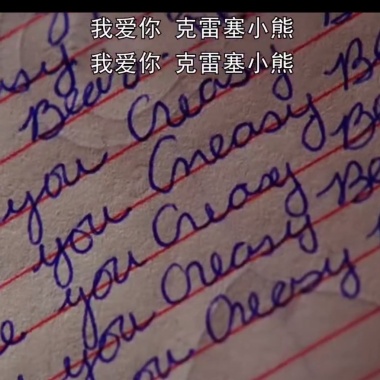 我爱你 克雷塞小熊
我爱你 克雷塞小熊
asy
Bear
you Creasy B
you Creasy Be
you Creasy Be
e you Creasy Be
you Creasy